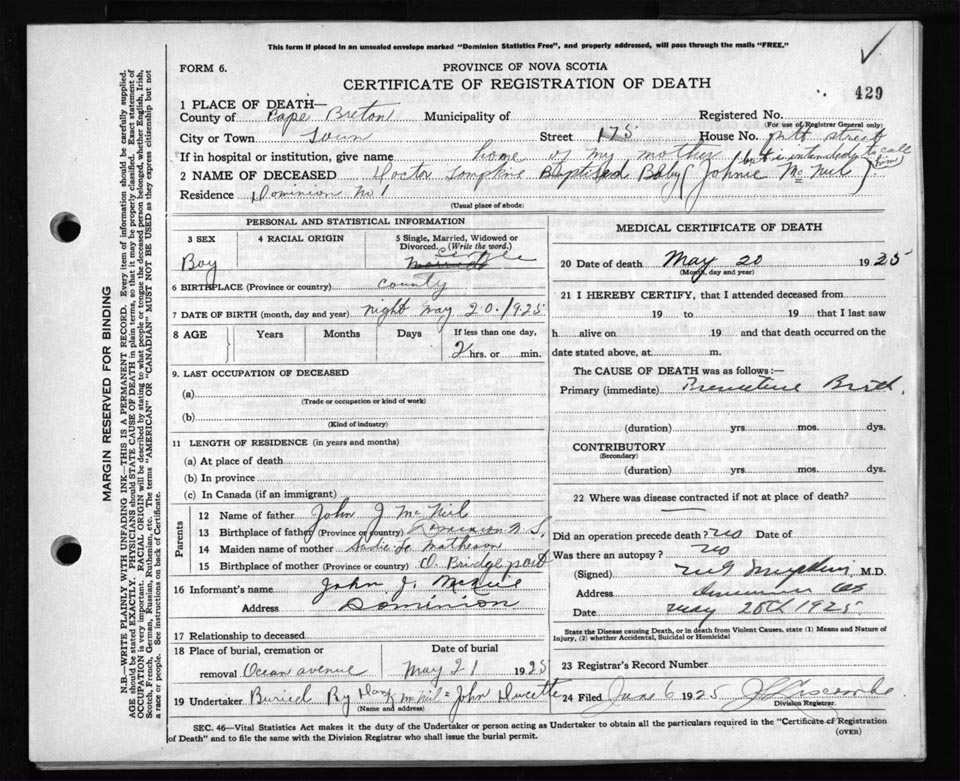 This form if placed in an unsealed envelope marked "Dominion Statistics Free", and properly addressed, will pass through the mails "FREE."
FORM 6.
PROVINCE OF NOVA SCOTIA
CERTIFICATE OF REGISTRATION OF DEATH
429
1 PLACE OF DEATH—
County of Cape Breton Municipality of Registered No.
(For use of Registrar General only)
City or Town Town Street 175 House No. street
If in hospital or institution, give name home of my mother (but is intended to call him)
2 NAME OF DECEASED Doctor Tompkins Baptised Baby (Johnie Mc Neil)
Residence Dominion No 1
(Usual place of abode)
PERSONAL AND STATISTICAL INFORMATION
3 SEX Boy
4 RACIAL ORIGIN
5 Single, Married, Widowed or Divorced. (Write the word.) single
6 BIRTHPLACE (Province or country) county
7 DATE OF BIRTH (month, day and year) night may 20. 1925
8 AGE Years Months Days If less than one day, 2 hrs. or min.
9. LAST OCCUPATION OF DECEASED
(a)
(Trade or occupation or kind of work)
(b)
(Kind of industry)
11 LENGTH OF RESIDENCE (in years and months)
(a) At place of death
(b) In province
(c) In Canada (if an immigrant)
Parents
12 Name of father John J McNeil
13 Birthplace of father (Province or country) Dominion N.S.
14 Maiden name of mother Sadie Matheson
15 Birthplace of mother (Province or country) O. Bridgeport
16 Informant's name John J. McNeil
Address Dominion
17 Relationship to deceased
18 Place of burial, cremation or
removal Ocean avenue May 21 1925
19 Undertaker Buried By Dan McNeil = John Doucette
(Name and address)
MEDICAL CERTIFICATE OF DEATH
20 Date of death May 20 1925
(Month, day and year)
21 I HEREBY CERTIFY, that I attended deceased from
19 to 19 that I last saw
h alive on 19 and that death occurred on
date stated above, at m.
The CAUSE OF DEATH was as follows:—
Primary (immediate) Premature Birth,
(duration) yrs mos. dys.
CONTRIBUTORY
(Secondary)
(duration) yrs. mos. dys.
22 Where was disease contracted if not at place of death?
Did an operation precede death? no Date of
Was there an autopsy? no
(Signed) M.D.
Address
Date May 20th 1925
State the Disease causing Death, or in death from Violent Causes, state (1) Means and Nature of
Injury, (2) whether Accidental, Suicidal or Homicidal
23 Registrar's Record Number
24 Filed June 6 1925 J Liscombe
Division Registrar.
SEC. 46—Vital Statistics Act makes it the duty of the Undertaker or person acting as Undertaker to obtain all the particulars required in the "Certificate of Registration
of Death" and to file the same with the Division Registrar who shall issue the burial permit.
(OVER)
MARGIN RESERVED FOR BINDING
N.B.—WRITE PLAINLY WITH UNFADING INK—THIS IS A PERMANENT RECORD. Every item of information should be carefully supplied.
AGE should be stated EXACTLY. PHYSICIANS should STATE CAUSE OF DEATH in plain terms, so that it may be properly classified. Exact statement of
OCCUPATION is very important. RACIAL ORIGIN will be described by stating to what people or tongue the deceased person belonged, whether English, Irish,
Scotch, French, German, Russian, Ruthenian, etc. The terms "AMERICAN" OR "CANADIAN" MUST NOT BE USED as they express citizenship but not
a race or people. See instructions on back of Certificate.